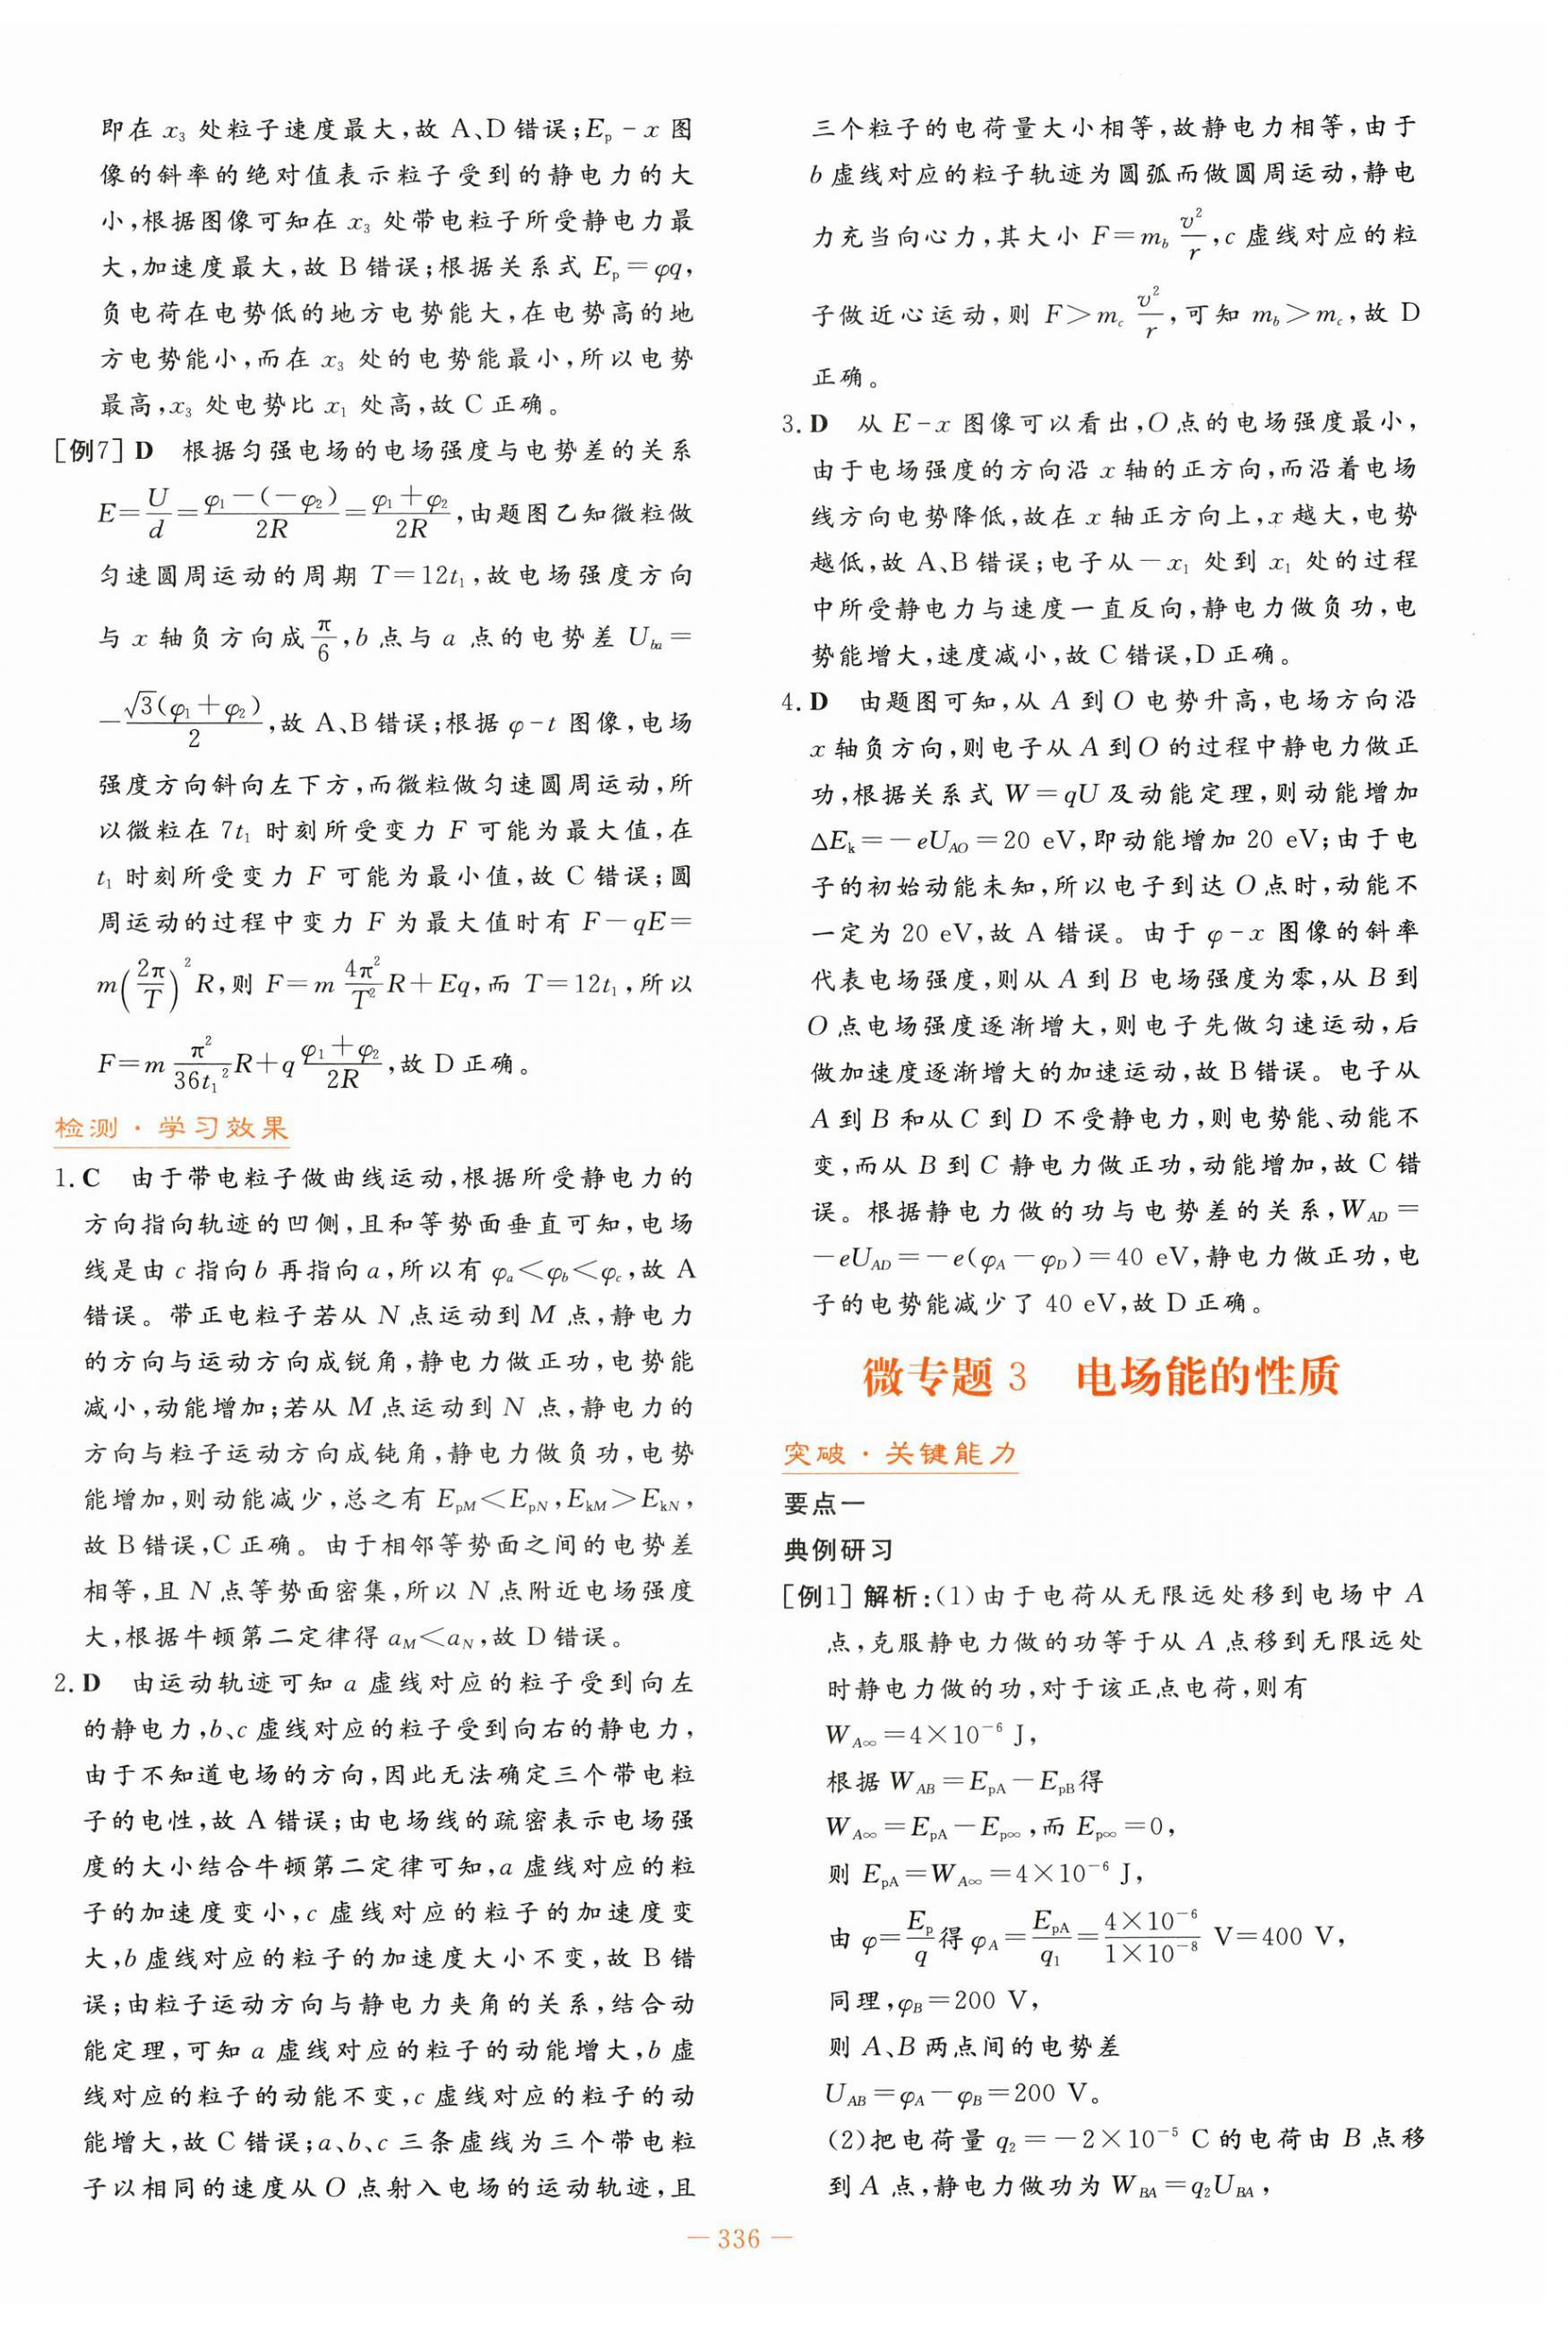 即在 x₃ 处粒子速度最大,故 A、D 错误;Eₚ－x 图
像的斜率的绝对值表示粒子受到的静电力的大
小,根据图像可知在 x₃ 处带电粒子所受静电力最
大,加速度最大,故 B 错误;根据关系式 Eₚ＝φq,
负电荷在电势低的地方电势能大,在电势高的地
方电势能小,而在 x₃ 处的电势能最小,所以电势
最高,x₃ 处电势比 x₁ 处高,故 C 正确。
[例7] D 根据匀强电场的电场强度与电势差的关系
E＝U/d＝(φ₁－(－φ₂))/2R＝(φ₁＋φ₂)/2R,由题图乙知微粒做
匀速圆周运动的周期 T＝12t₁,故电场强度方向
与 x 轴负方向成 π/6,b 点与 a 点的电势差 U_ba＝
－√3(φ₁＋φ₂)/2,故 A、B 错误;根据 φ－t 图像,电场
强度方向斜向左下方,而微粒做匀速圆周运动,所
以微粒在 7t₁ 时刻所受变力 F 可能为最大值,在
t₁ 时刻所受变力 F 可能为最小值,故 C 错误;圆
周运动的过程中变力 F 为最大值时有 F－qE＝
m(2π/T)²R,则 F＝m 4π²/T² R＋Eq,而 T＝12t₁,所以
F＝m π²/36t₁² R＋q (φ₁＋φ₂)/2R,故 D 正确。
检测·学习效果
1. C 由于带电粒子做曲线运动,根据所受静电力的
方向指向轨迹的凹侧,且和等势面垂直可知,电场
线是由 c 指向 b 再指向 a,所以有 φₐ＜φ_b＜φ_c,故 A
错误。带正电粒子若从 N 点运动到 M 点,静电力
的方向与运动方向成锐角,静电力做正功,电势能
减小,动能增加;若从 M 点运动到 N 点,静电力的
方向与粒子运动方向成钝角,静电力做负功,电势
能增加,则动能减少,总之有 E_pM＜E_pN,E_kM＞E_kN,
故 B 错误,C 正确。由于相邻等势面之间的电势差
相等,且 N 点等势面密集,所以 N 点附近电场强度
大,根据牛顿第二定律得 a_M＜a_N,故 D 错误。
2. D 由运动轨迹可知 a 虚线对应的粒子受到向左
的静电力,b、c 虚线对应的粒子受到向右的静电力,
由于不知道电场的方向,因此无法确定三个带电粒
子的电性,故 A 错误;由电场线的疏密表示电场强
度的大小结合牛顿第二定律可知,a 虚线对应的粒
子的加速度变小,c 虚线对应的粒子的加速度变
大,b 虚线对应的粒子的加速度大小不变,故 B 错
误;由粒子运动方向与静电力夹角的关系,结合动
能定理,可知 a 虚线对应的粒子的动能增大,b 虚
线对应的粒子的动能不变,c 虚线对应的粒子的动
能增大,故 C 错误;a、b、c 三条虚线为三个带电粒
子以相同的速度从 O 点射入电场的运动轨迹,且
三个粒子的电荷量大小相等,故静电力相等,由于
b 虚线对应的粒子轨迹为圆弧而做圆周运动,静电
力充当向心力,其大小 F＝m_b v²/r,c 虚线对应的粒
子做近心运动,则 F＞m_c v²/r,可知 m_b＞m_c,故 D
正确。
3. D 从 E－x 图像可以看出,O 点的电场强度最小,
由于电场强度的方向沿 x 轴的正方向,而沿着电场
线方向电势降低,故在 x 轴正方向上,x 越大,电势
越低,故 A、B 错误;电子从－x₁ 处到 x₁ 处的过程
中所受静电力与速度一直反向,静电力做负功,电
势能增大,速度减小,故 C 错误,D 正确。
4. D 由题图可知,从 A 到 O 电势升高,电场方向沿
x 轴负方向,则电子从 A 到 O 的过程中静电力做正
功,根据关系式 W＝qU 及动能定理,则动能增加
ΔE_k＝－eU_AO＝20 eV,即动能增加 20 eV;由于电
子的初始动能未知,所以电子到达 O 点时,动能不
一定为 20 eV,故 A 错误。由于 φ－x 图像的斜率
代表电场强度,则从 A 到 B 电场强度为零,从 B 到
O 点电场强度逐渐增大,则电子先做匀速运动,后
做加速度逐渐增大的加速运动,故 B 错误。电子从
A 到 B 和从 C 到 D 不受静电力,则电势能、动能不
变,而从 B 到 C 静电力做正功,动能增加,故 C 错
误。根据静电力做的功与电势差的关系,W_AD＝
－eU_AD＝－e(φ_A－φ_D)＝40 eV,静电力做正功,电
子的电势能减少了 40 eV,故 D 正确。
微专题 3 电场能的性质
突破·关键能力
要点一
典例研习
[例1] 解析:(1)由于电荷从无限远处移到电场中 A
点,克服静电力做的功等于从 A 点移到无限远处
时静电力做的功,对于该正点电荷,则有
W_A∞＝4×10⁻⁶ J,
根据 W_AB＝E_pA－E_pB得
W_A∞＝E_pA－E_p∞,而 E_p∞＝0,
则 E_pA＝W_A∞＝4×10⁻⁶ J,
由 φ＝Eₚ/q 得 φ_A＝E_pA/q₁＝(4×10⁻⁶)/(1×10⁻⁸) V＝400 V,
同理,φ_B＝200 V,
则 A、B 两点间的电势差
U_AB＝φ_A－φ_B＝200 V。
(2)把电荷量 q₂＝－2×10⁻⁵ C 的电荷由 B 点移
到 A 点,静电力做功为 W_BA＝q₂U_BA,
— 336 —